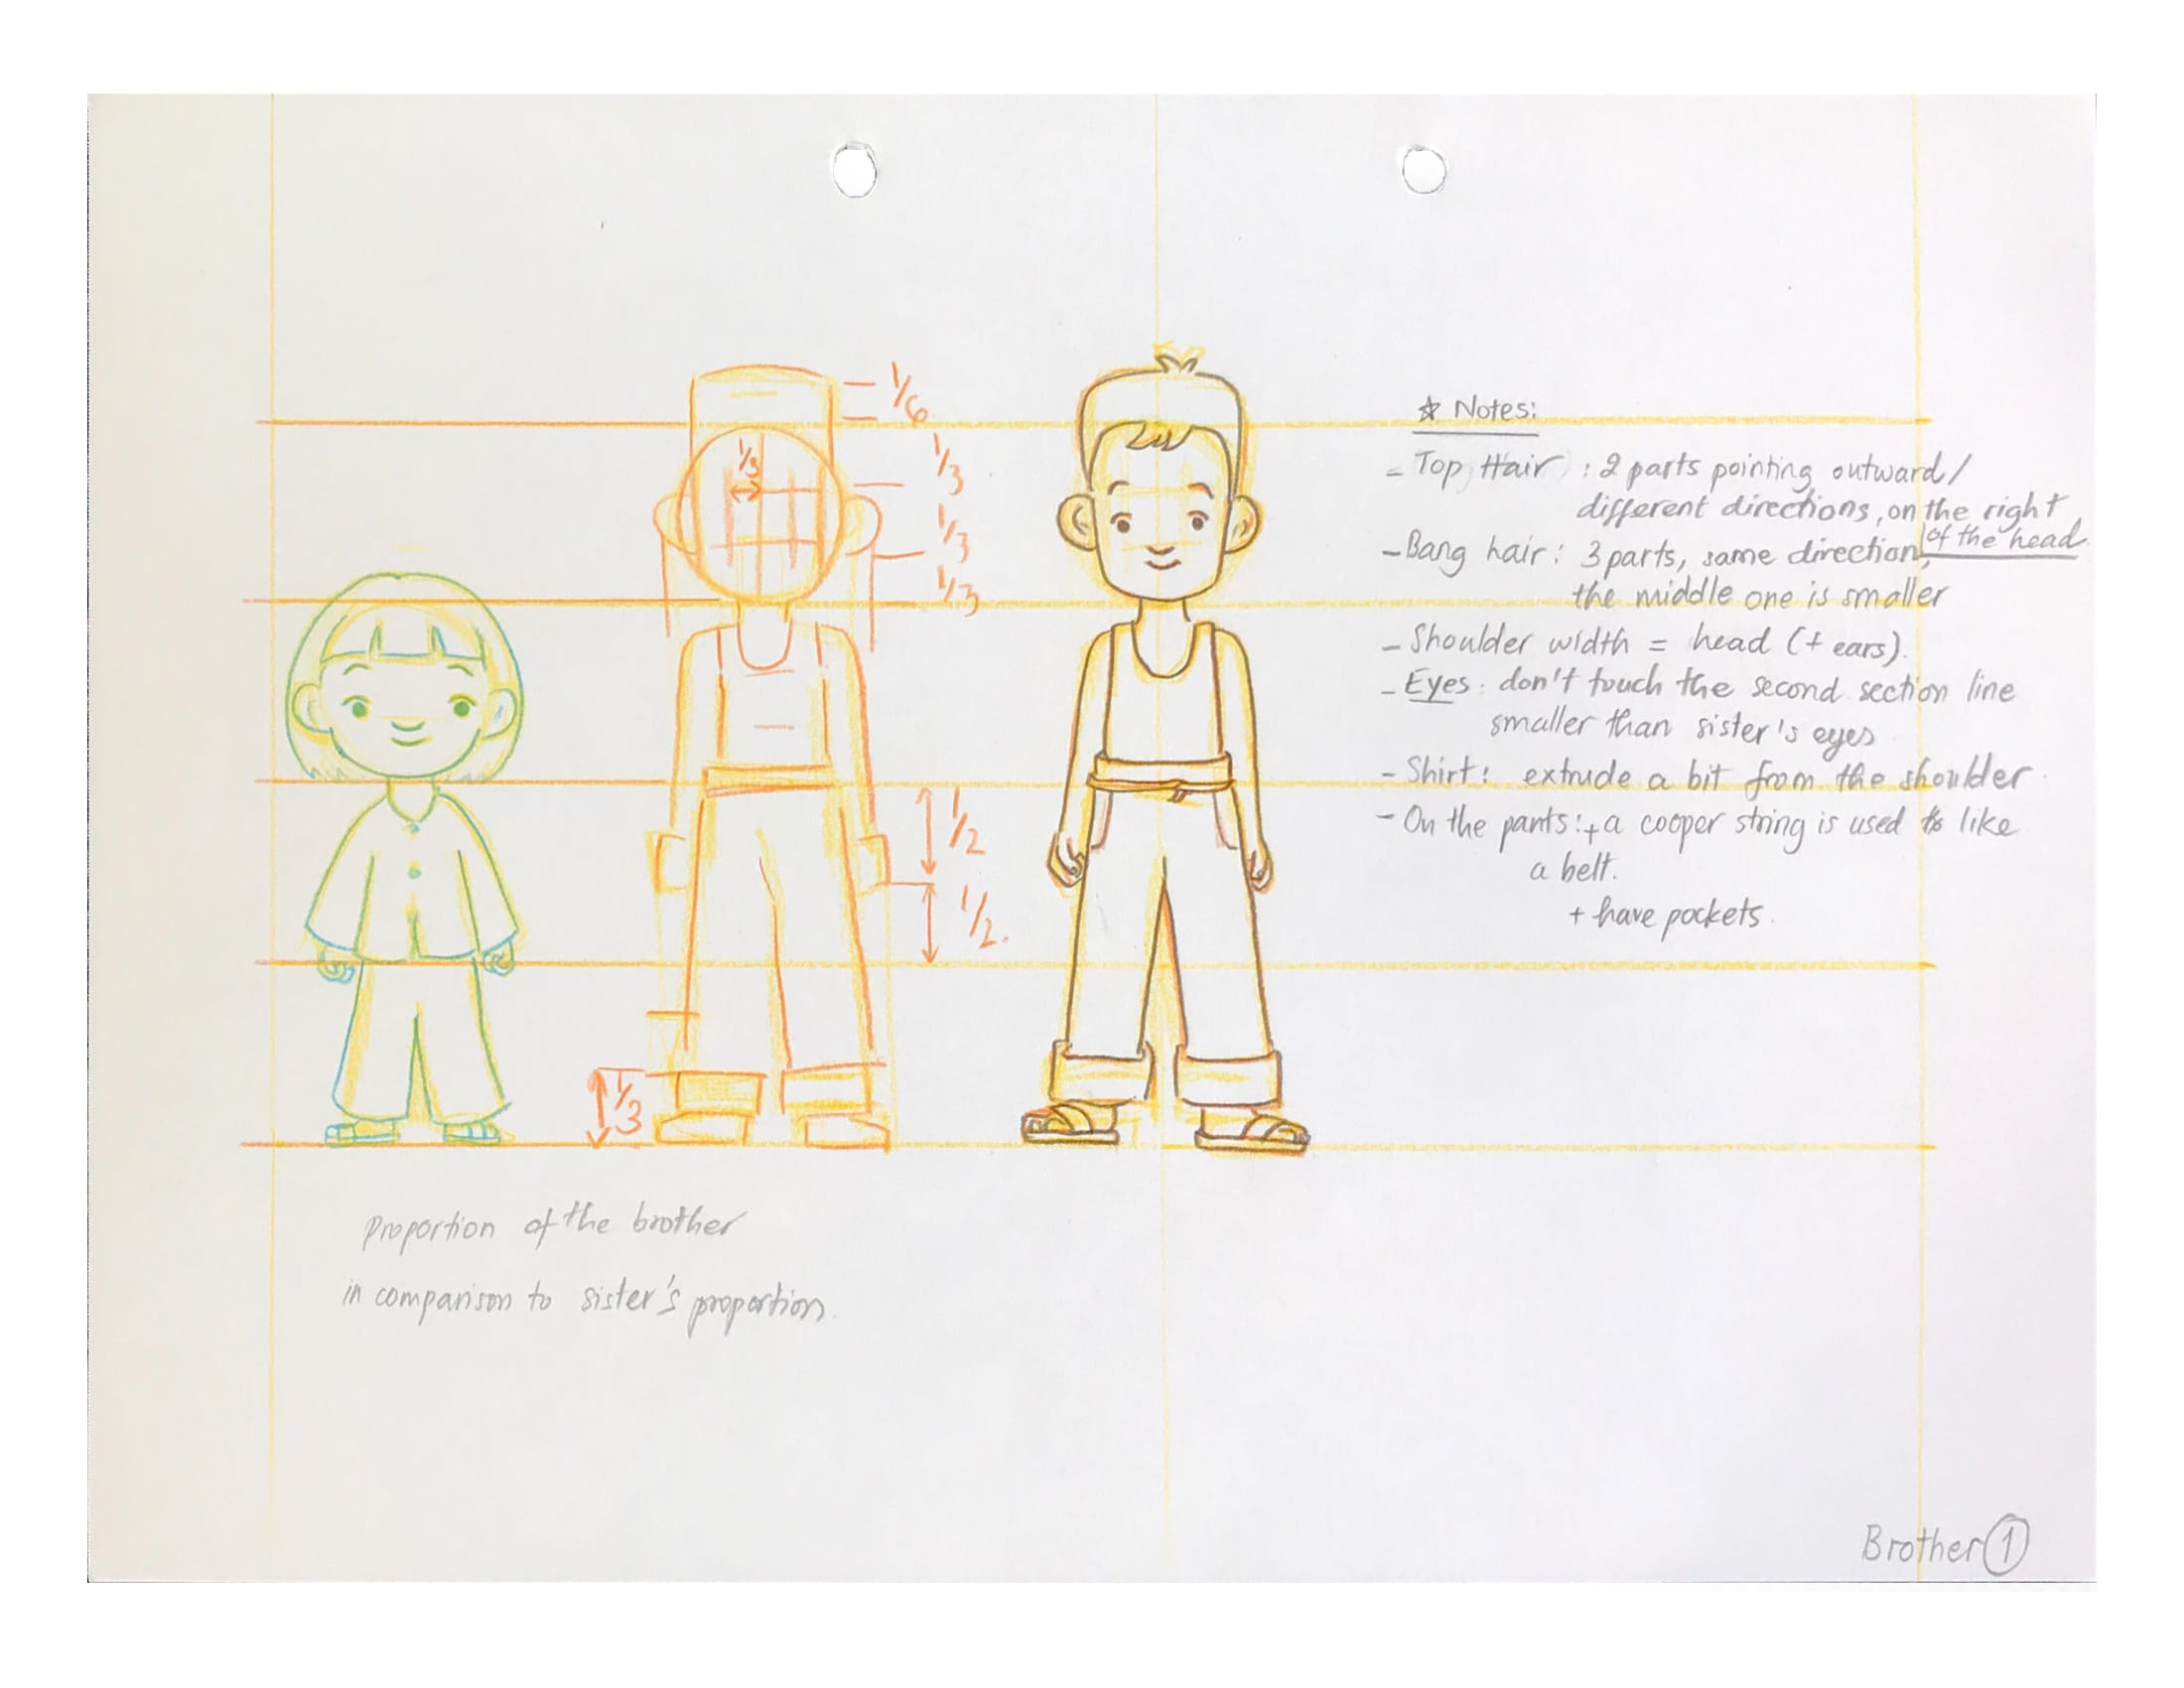 1/6
1/3
1/3
1/3
1/3
1/2
1/2.
1/3
☆ Notes:
- Top Hair : 2 parts pointing outward/
different directions, on the right
of the head
- Bang hair : 3 parts, same direction,
the middle one is smaller
- Shoulder width = head (+ ears).
- Eyes : don't touch the second section line
smaller than sister's eyes
- Shirt : extrude a bit from the shoulder
- On the pants : + a cooper string is used to like
a belt.
+ have pockets.
Proportion of the brother
in comparison to sister's proportion.
Brother 1